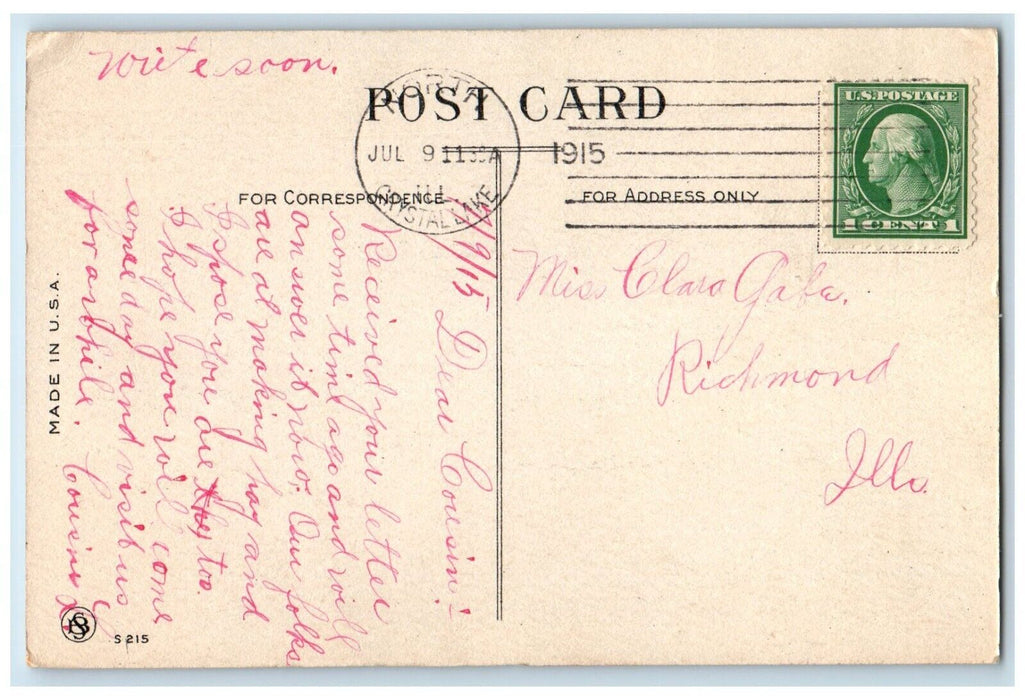 Write soon.
POST CARD
NORTH
CRYSTAL LAKE
ILL
JUL 9 11 30A
1915
U.S. POSTAGE
1 CENT 1
FOR CORRESPONDENCE
FOR ADDRESS ONLY
7/9/15
Dear Cousin:-
Received your letter
some time ago and will
answer it now. Our folks
are at making hay and
I spose you are too.
I hope you will come
some day and visit us
for awhile. Cousin
Miss Clara
Richmond
Ills.
MADE IN U.S.A.
S 215